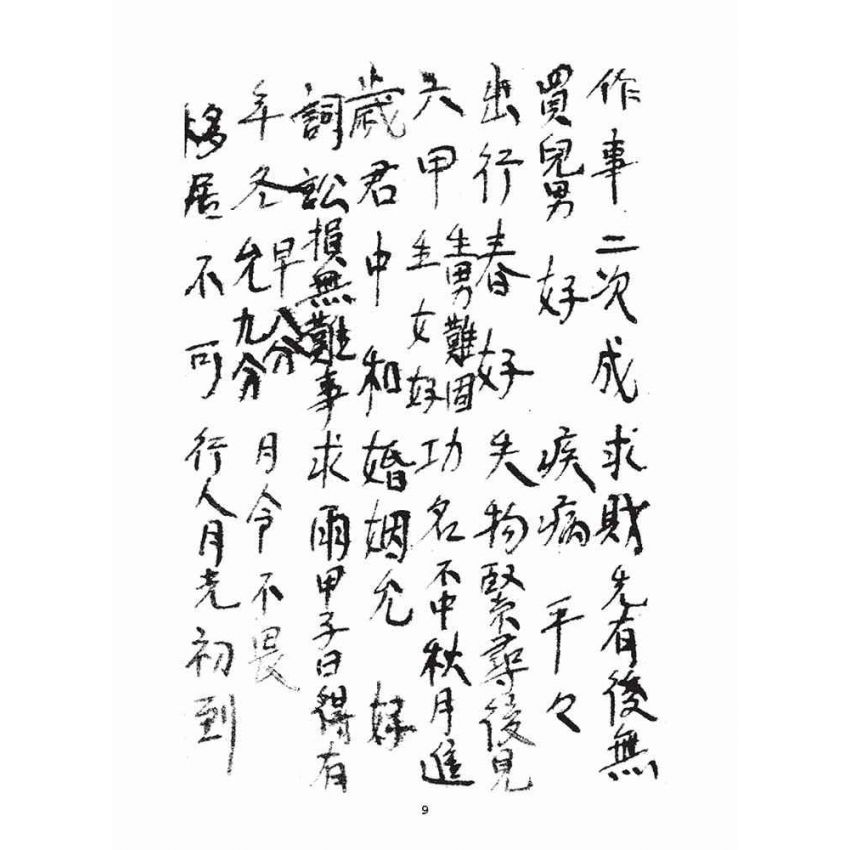 作事二次成 求財先有後無
買兒男 好 疾病 平々
出行春好 失物緊尋後見
六甲生男難固生女好 功名不中秋月進
歲君中和 婚姻允 好
詞訟損無難事 求雨甲子日得有
年冬早八分允九分 月令不畏
移居不可 行人月光初到
9